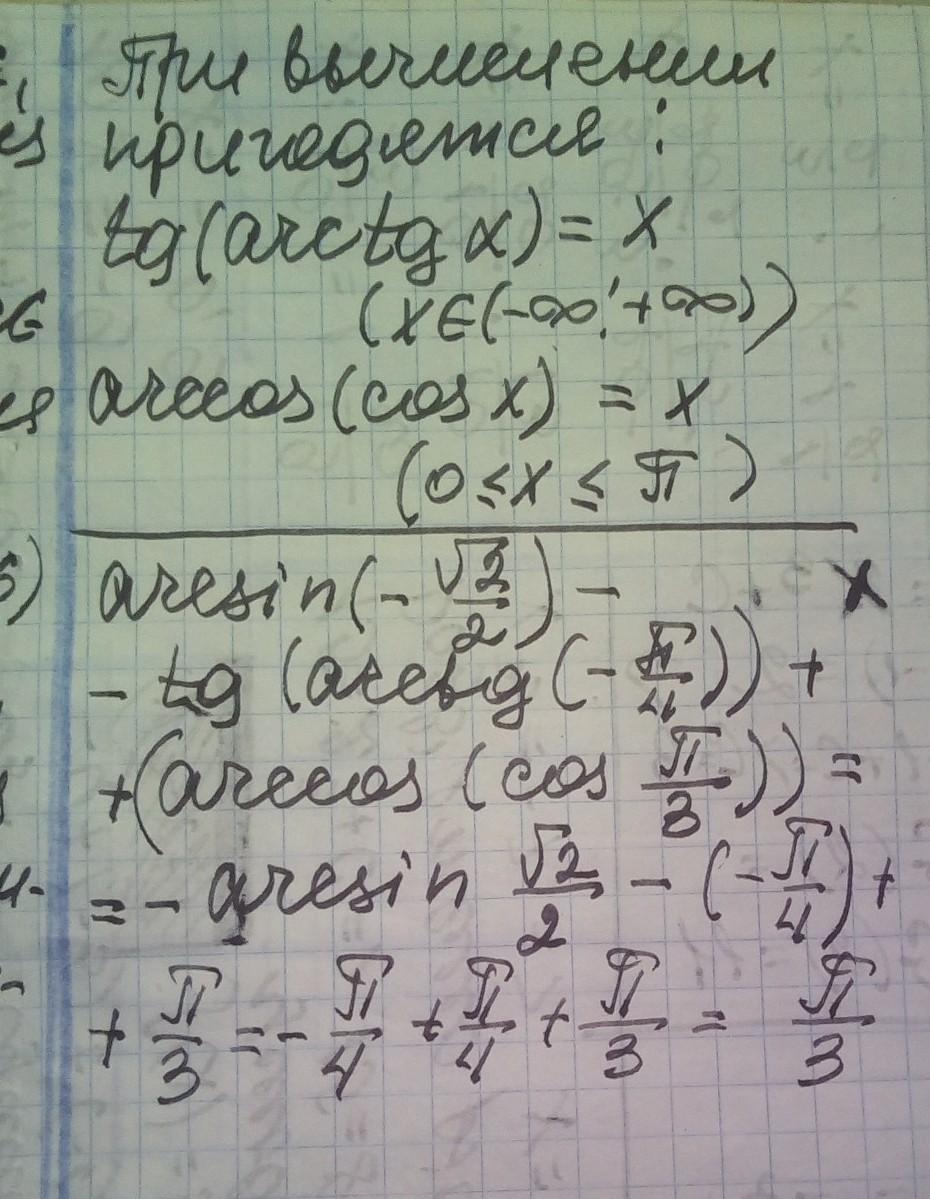 При вычислении
пригодятся:
tg(arctg x) = x
(x ∈ (-∞; +∞))
arccos(cos x) = x
(0 ≤ x ≤ π)
5) arcsin(-√2/2) -
- tg(arctg(-π/4)) +
+(arccos(cos π/3)) =
= - arcsin √2/2 - (-π/4) +
+ π/3 = - π/4 + π/4 + π/3 = π/3